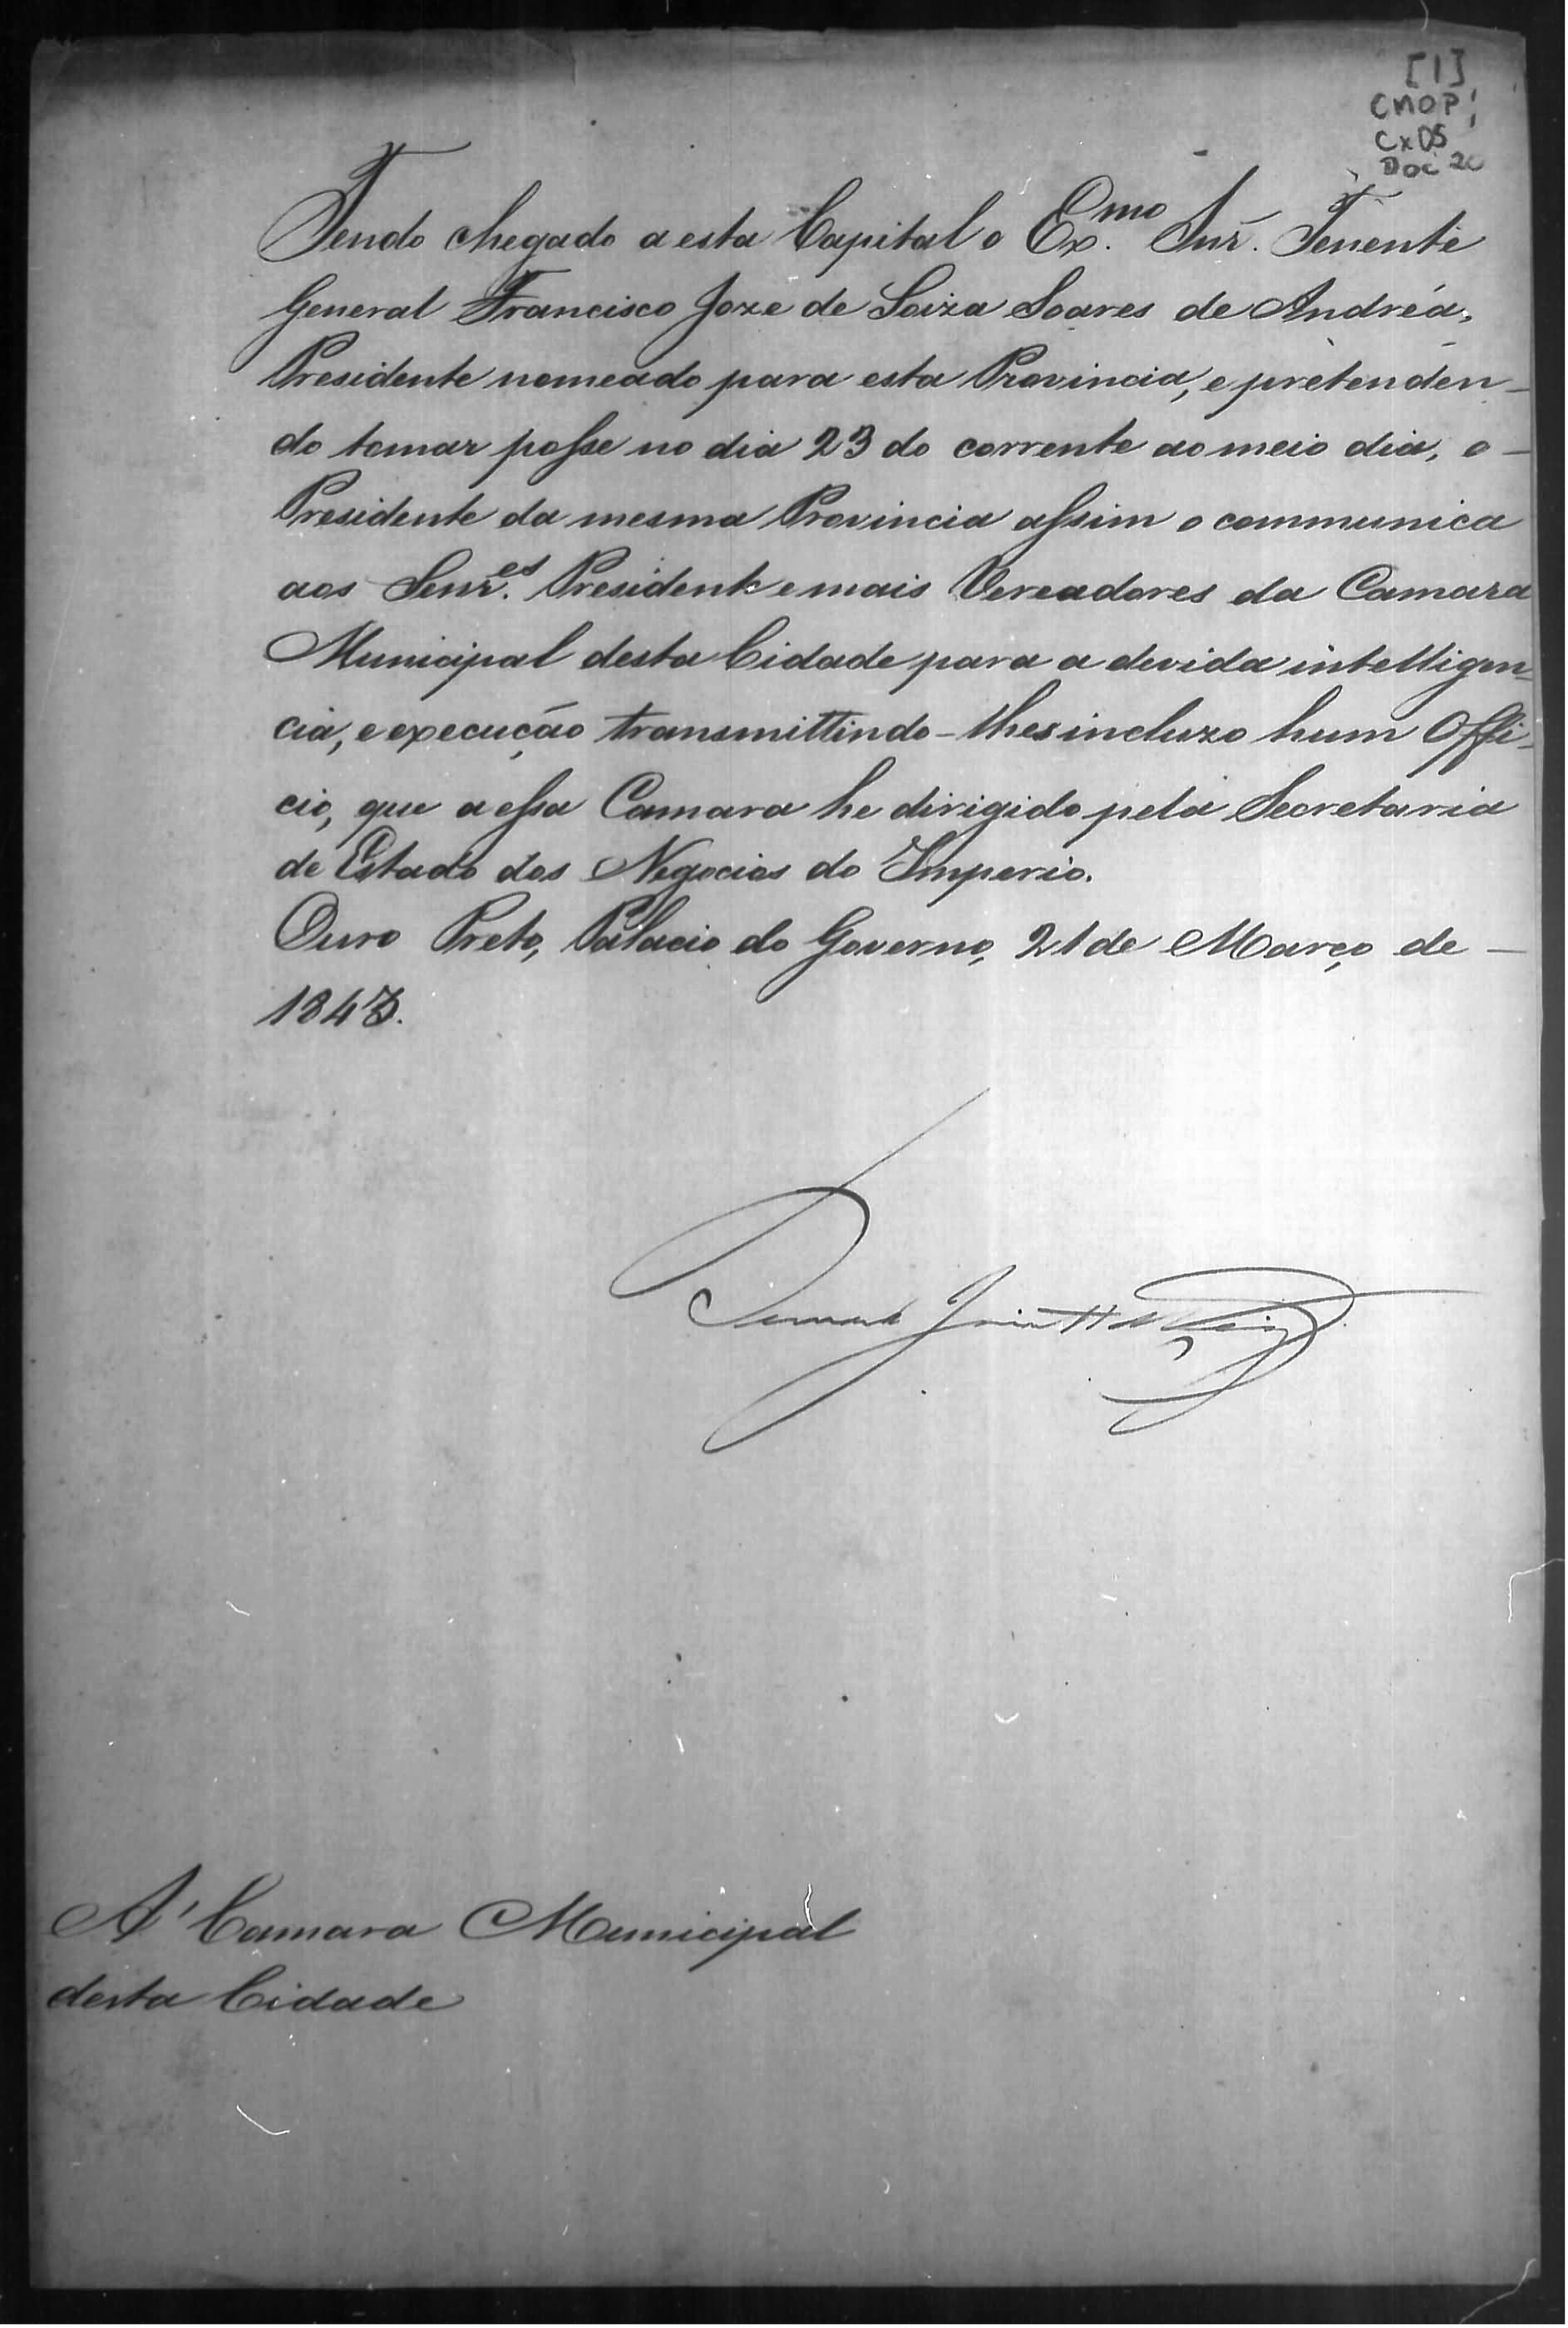 [1]
CMOP
Cx 05
Doc 20
Tendo chegado a esta Capital o Ex.mo Snr. Tenente
General Francisco Joze de Soiza Soares de Andréa,
Presidente nomeado para esta Provincia, e pretenden-
do tomar posse no dia 23 do corrente ao meio dia, o
Presidente da mesma Provincia assim o communica
aos Senr.es Presidente e mais Vereadores da Camara
Municipal desta Cidade para a devida intelligen-
cia, e execução transmittindo-lhes incluzo hum Offi-
cio, que a essa Camara he dirigido pela Secretaria
de Estado dos Negocios do Imperio.
Ouro Preto, Palacio do Governo, 21 de Março de
1843.
A' Camara Municipal
desta Cidade